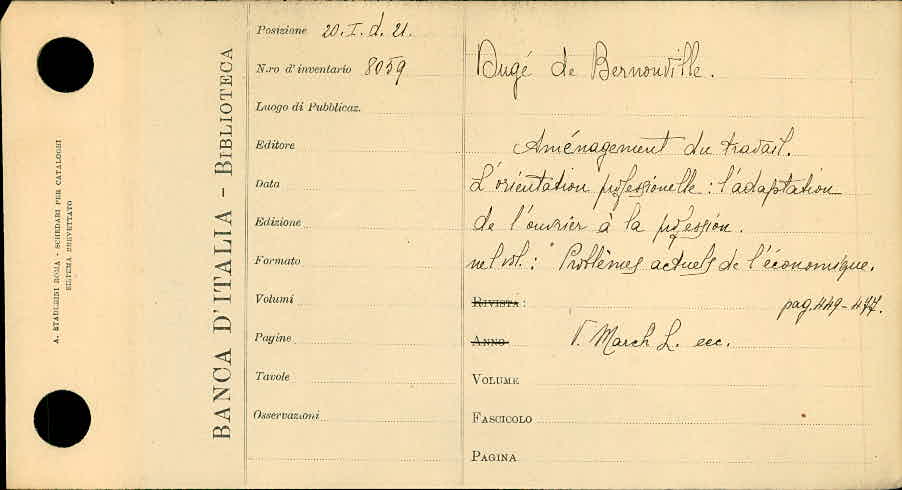 A. STADERINI ROMA - SCHEDARI PER CATALOGHI
SISTEMA BREVETTATO
BANCA D'ITALIA - BIBLIOTECA
Posizione 20. I. d. 21.
N.ro d'inventario 8059
Luogo di Pubblicaz.
Editore
Data
Edizione
Formato
Volumi
Pagine
Tavole
Osservazioni
Dugé de Bernonville.
Aménagement du travail.
L'orientation professionelle : l'adaptation
de l'ouvrier à la profession.
nel vol. : " Problèmes actuels de l'économique.
RIVISTA : pag. 449-477.
ANNO V. March L. ecc.
VOLUME
FASCICOLO
PAGINA